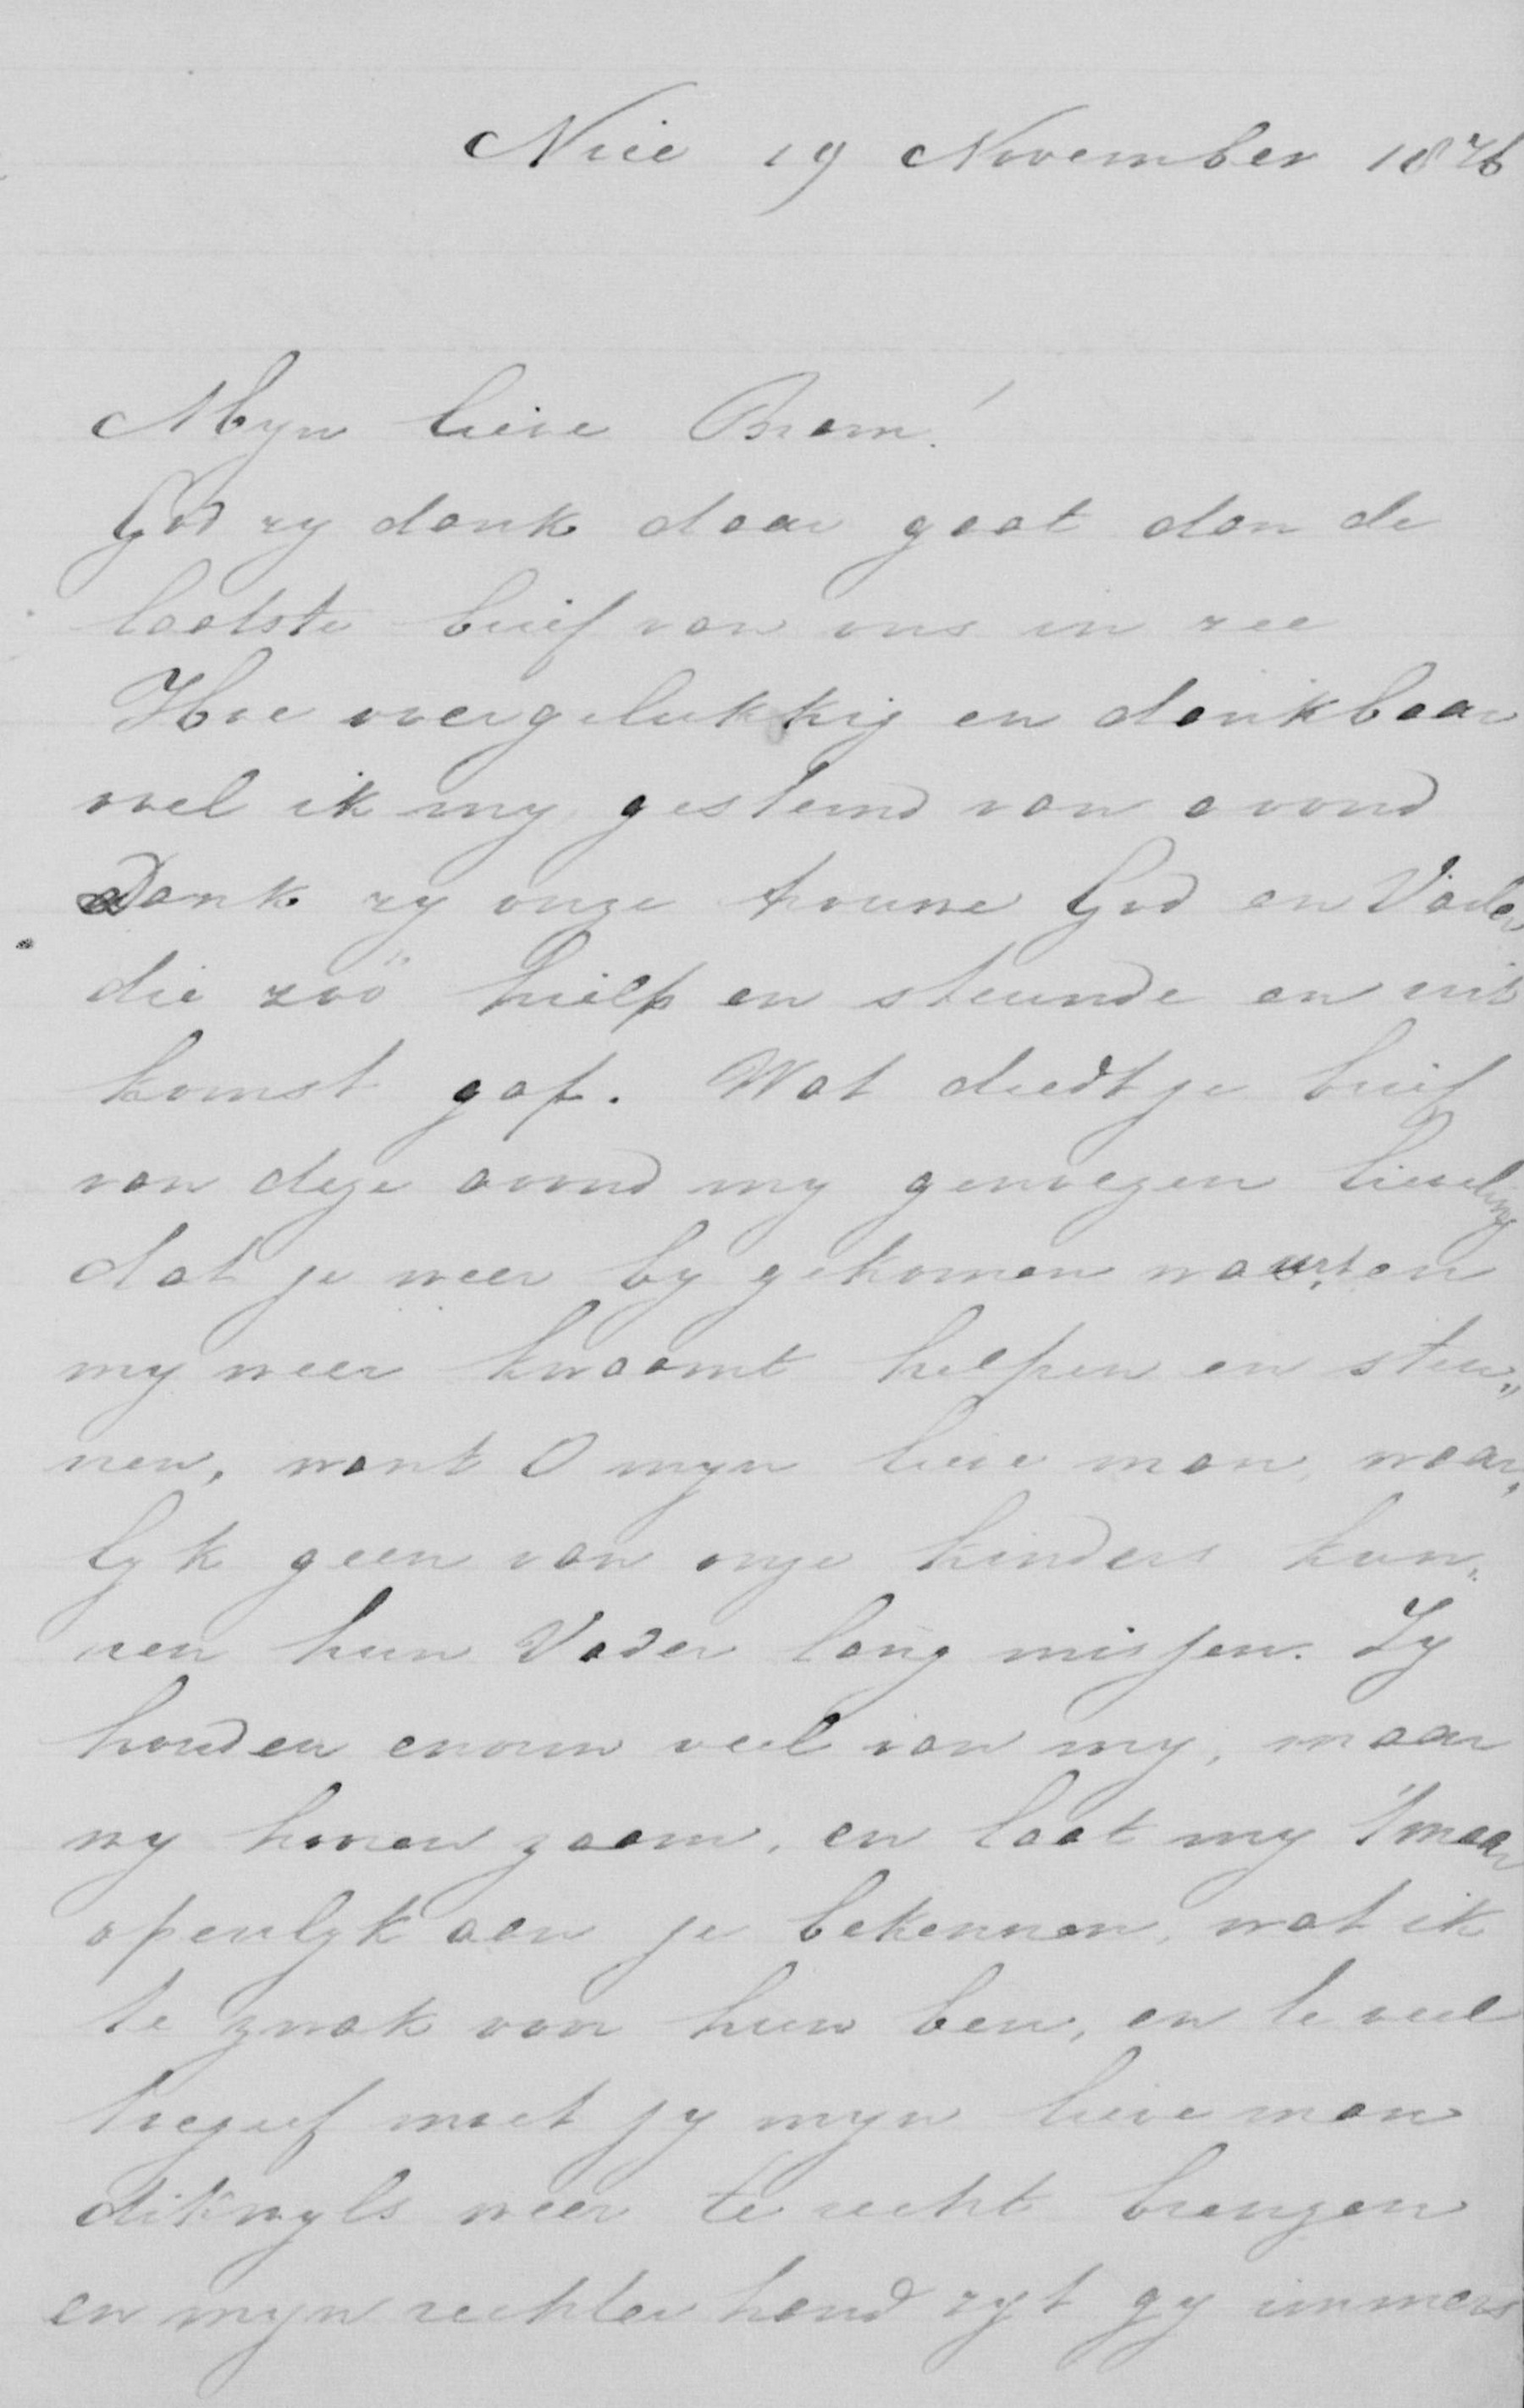 Nice 19 November 1876
Myn lieve Bram!
God zy dank daar gaat dan de
laatste brief van ons in zee
Hoe overgelukkig en dankbaar
voel ik my gestemd van avond
Dank zy onze trouwe God en Vader
die zóó hielp en steunde en uit
komst gaf. Wat deedt je brief
van deze avond my genoegen lieveling
dat je weer by gekomen waart en
my weer kwaamt helpen en steu„
nen, want O myn lieve man, waar„
lyk geen van onze kinders kun„
nen hun Vader lang missen. Zy
houden enorm veel van my, maar
wy horen zaam, en laat my 't maar
openlyk aan je bekennen, wat ik
te zwak voor hun ben, en te veel
toegeef moet jy myn lieve man
dikwyls weer te recht brengen
en myn rechter hand zyt gy immers